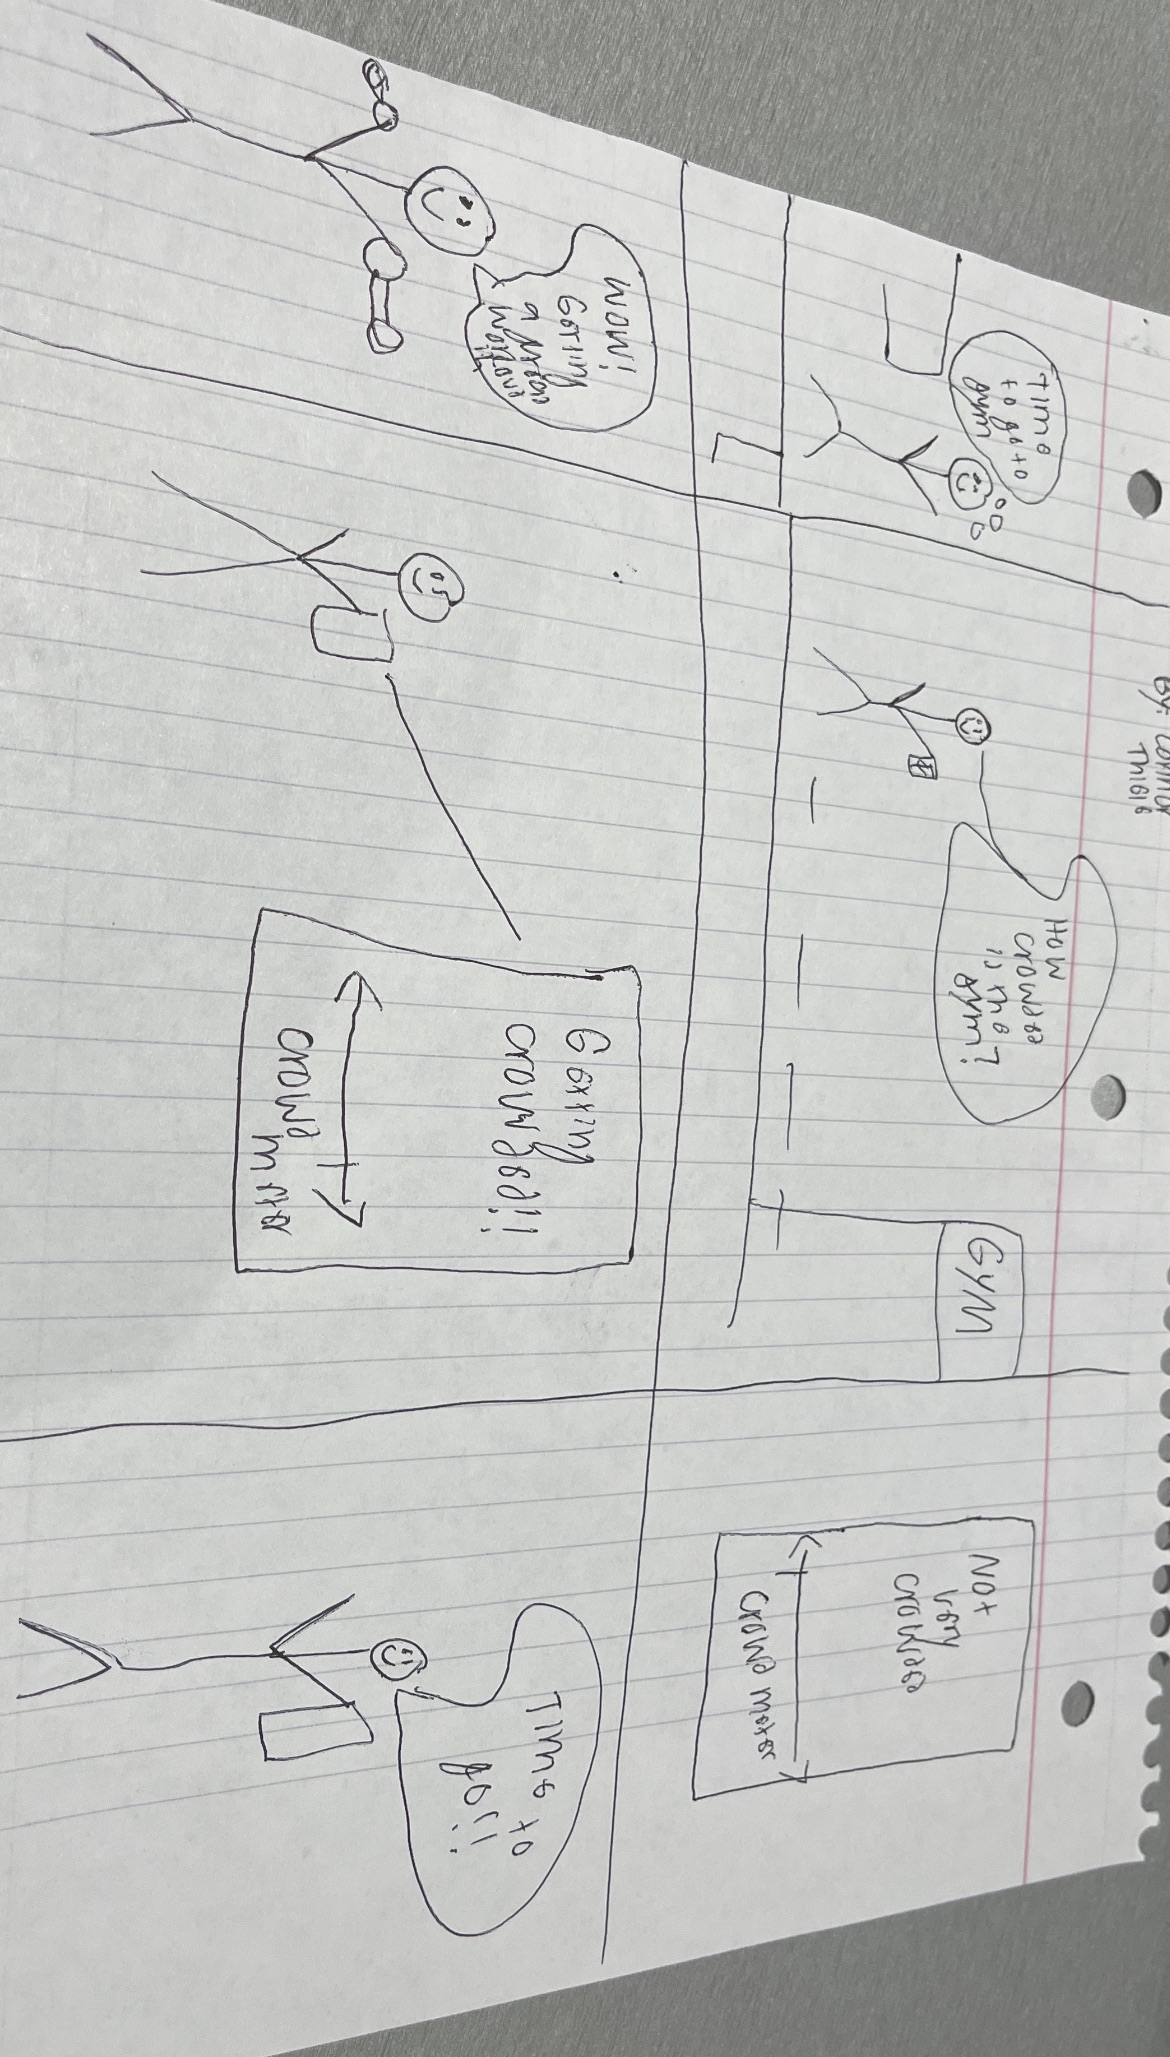 By: Connor
Thiele
Time
to go to
gym
How
crowded
is the
gym?
GYM
Not
very
crowded
crowd meter
WOW!
Getting
a great
workout
Getting
crowded!!
crowd
meter
Time to
go!!